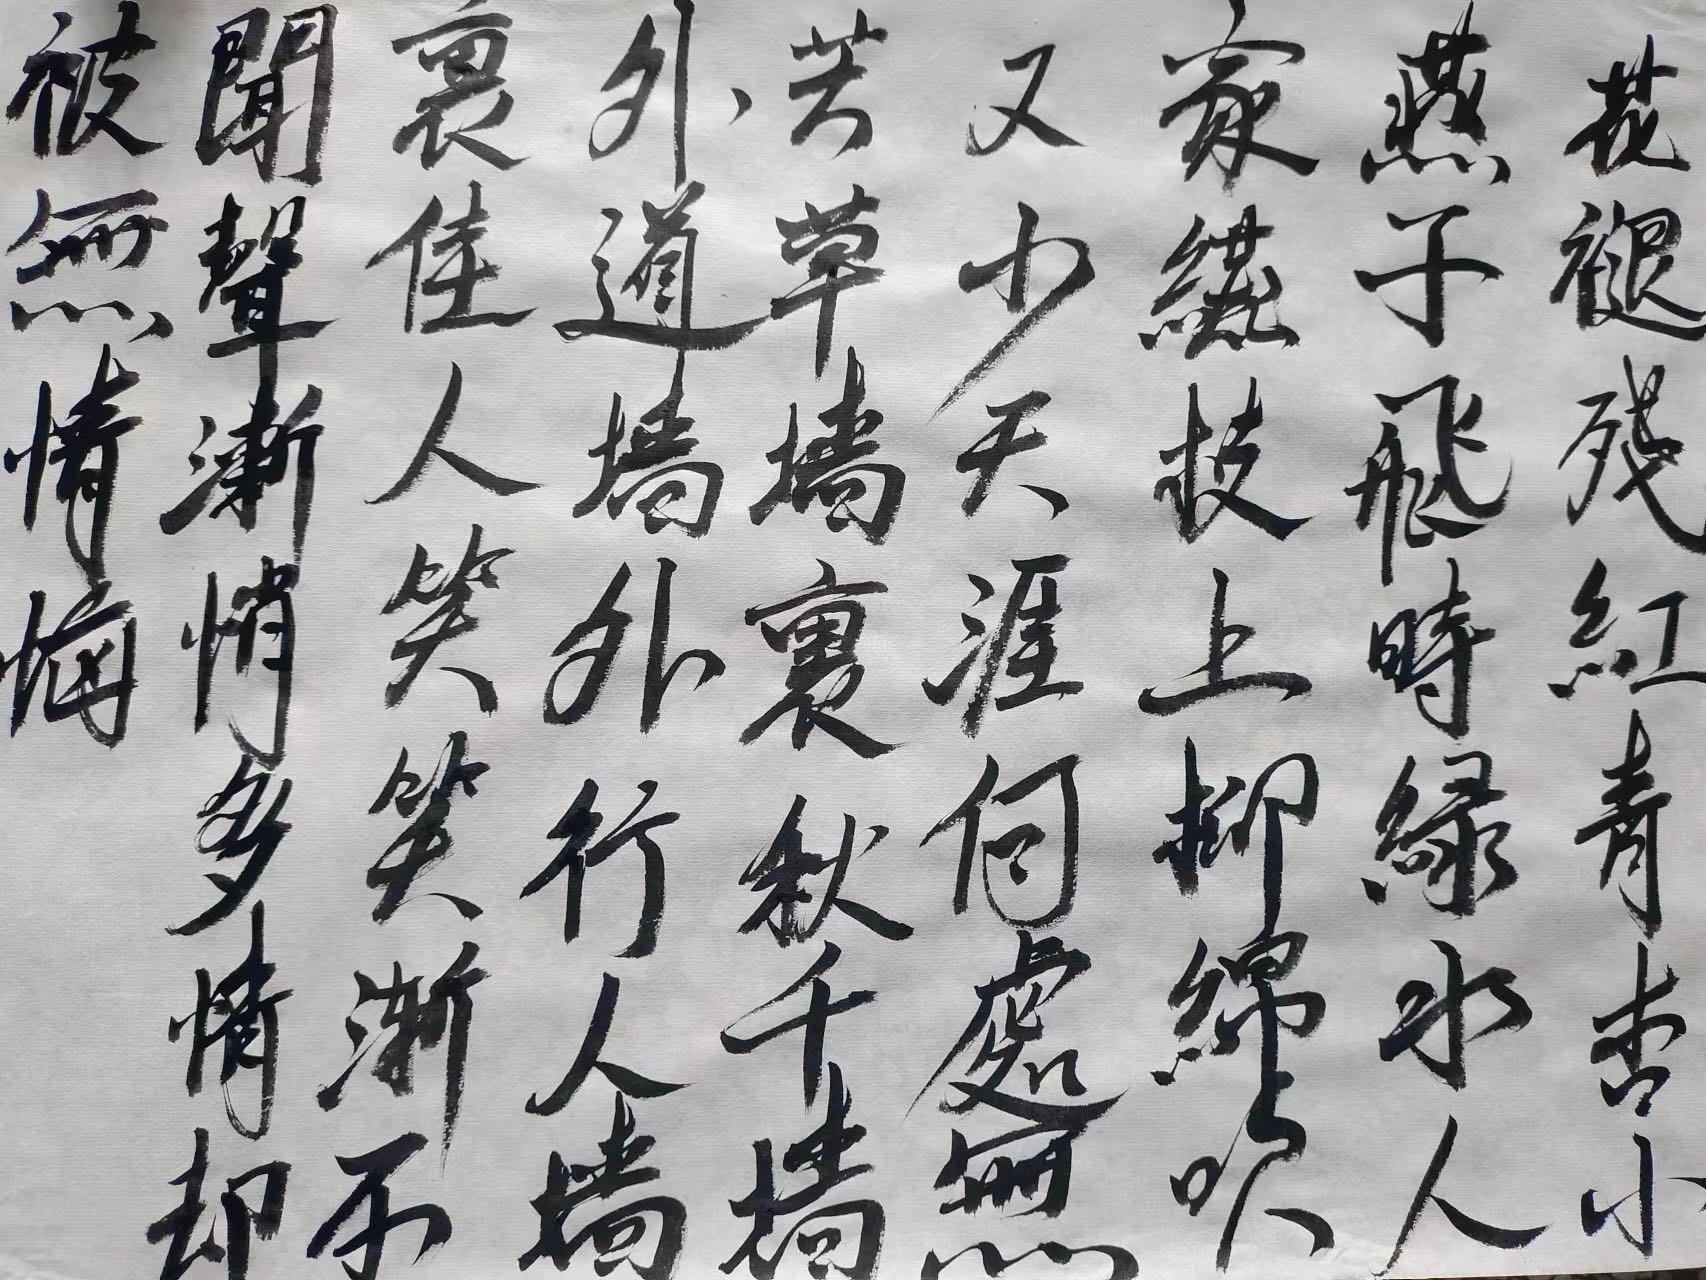 花褪残紅青杏小
燕子飛時緑水人
家繞枝上柳綿吹
又少天涯何處無
芳草墙裏秋千墙
外道墙外行人墙
裏佳人笑笑漸不
聞聲漸悄多情却
被無情惱